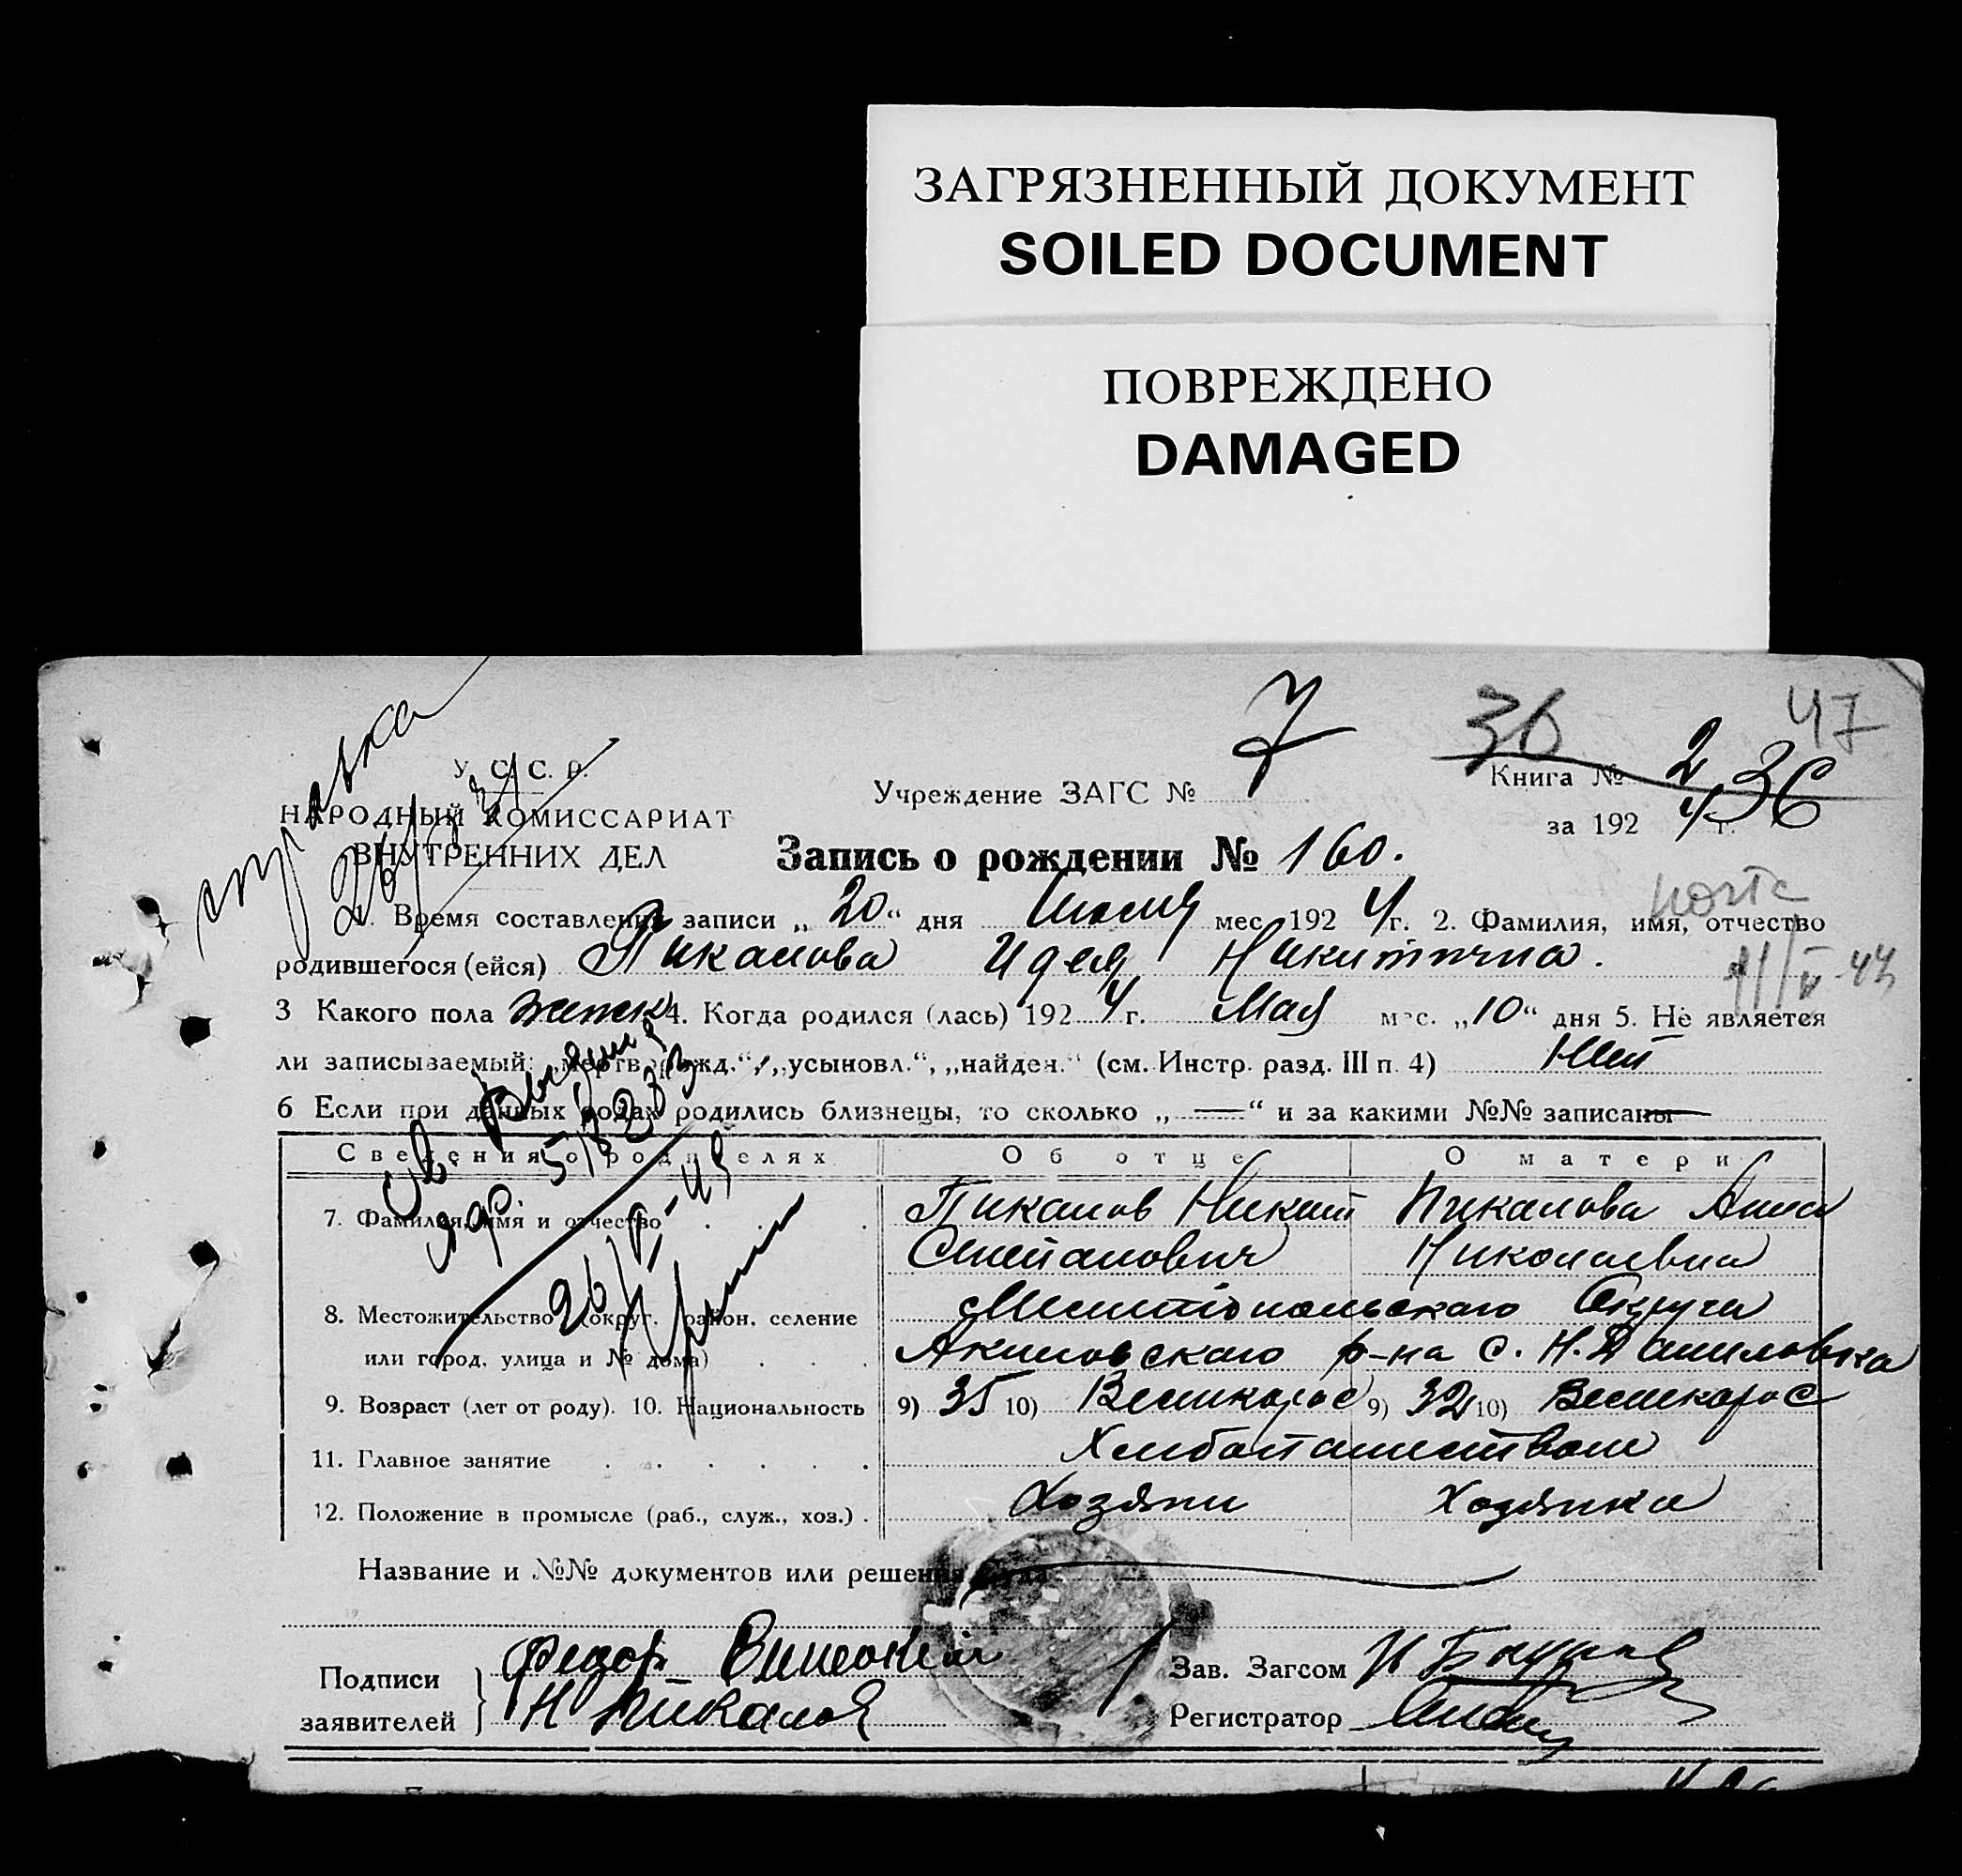 ЗАГРЯЗНЕННЫЙ ДОКУМЕНТ
SOILED DOCUMENT
ПОВРЕЖДЕНО
DAMAGED
справка
7
36
47
У. С. С. Р.
НАРОДНЫЙ КОМИССАРИАТ
ВНУТРЕННИХ ДЕЛ
Учреждение ЗАГС №
Книга № 2
36
за 192 4 г.
Запись о рождении № 160.
1. Время составления записи „ 20 “ дня Июля мес. 192 4 г. 2. Фамилия, имя, отчество
родившегося (ейся) Пикалова Идея Никитична.
3 Какого пола женск 4. Когда родился (лась) 192 4 г. Мая мес. „ 10 “ дня 5. Не является
ли записываемый: „мертворожд.“, „усыновл.“, „найден.“ (см. Инстр. разд. III п. 4) Нет
6 Если при данных родах родились близнецы, то сколько „ — “ и за какими №№ записаны —
Сведения о родителях Об отце О матери
7. Фамилия, имя и отчество Пикалов Никит Пикалова Анна
Степанович Николаевна
8. Местожительство (округ, район, селение Мелитопольского Округа
или город, улица и № дома) Акимовского р-на с. Н. Даниловка
9. Возраст (лет от роду). 10. Национальность 9) 35 10) Великорос 9) 32 10) Великорос
11. Главное занятие Хлебопашеством
12. Положение в промысле (раб., служ., хоз.) Хозяин Хозяйка
Название и №№ документов или решения суда
Подписи
заявителей
Федор
Н Пикалов
Зав. Загсом
Регистратор